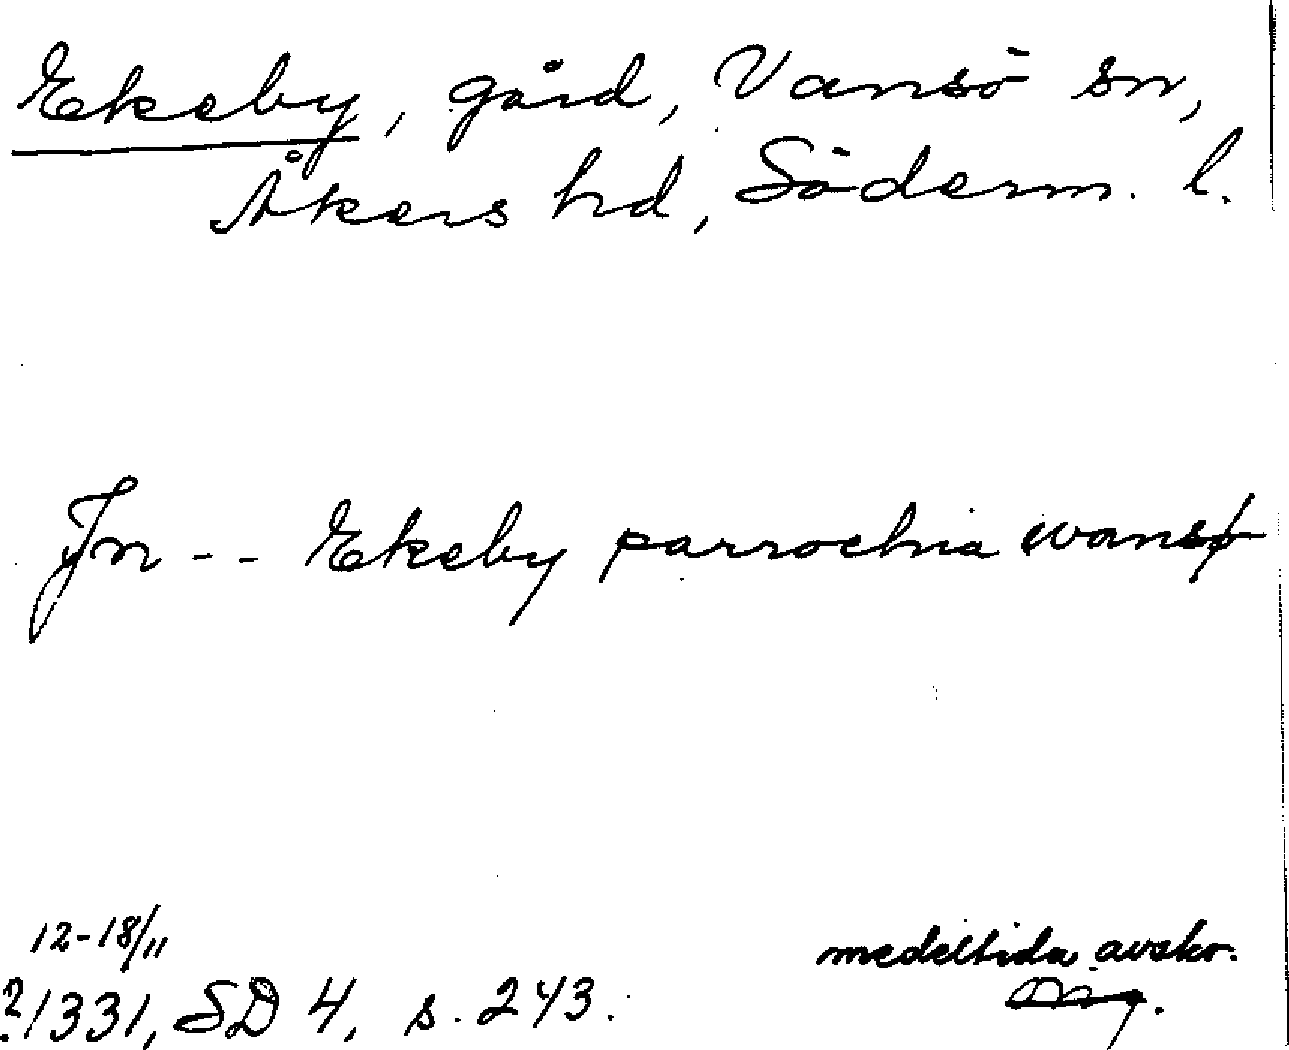 Ekeby, gård, Vansö sn,
Åkers hd, Söderm. l.
Jn -- Ekeby parrochia wansø
12-18/11
?1331, SD 4, s. 243.
medeltida avskr.
Orig.